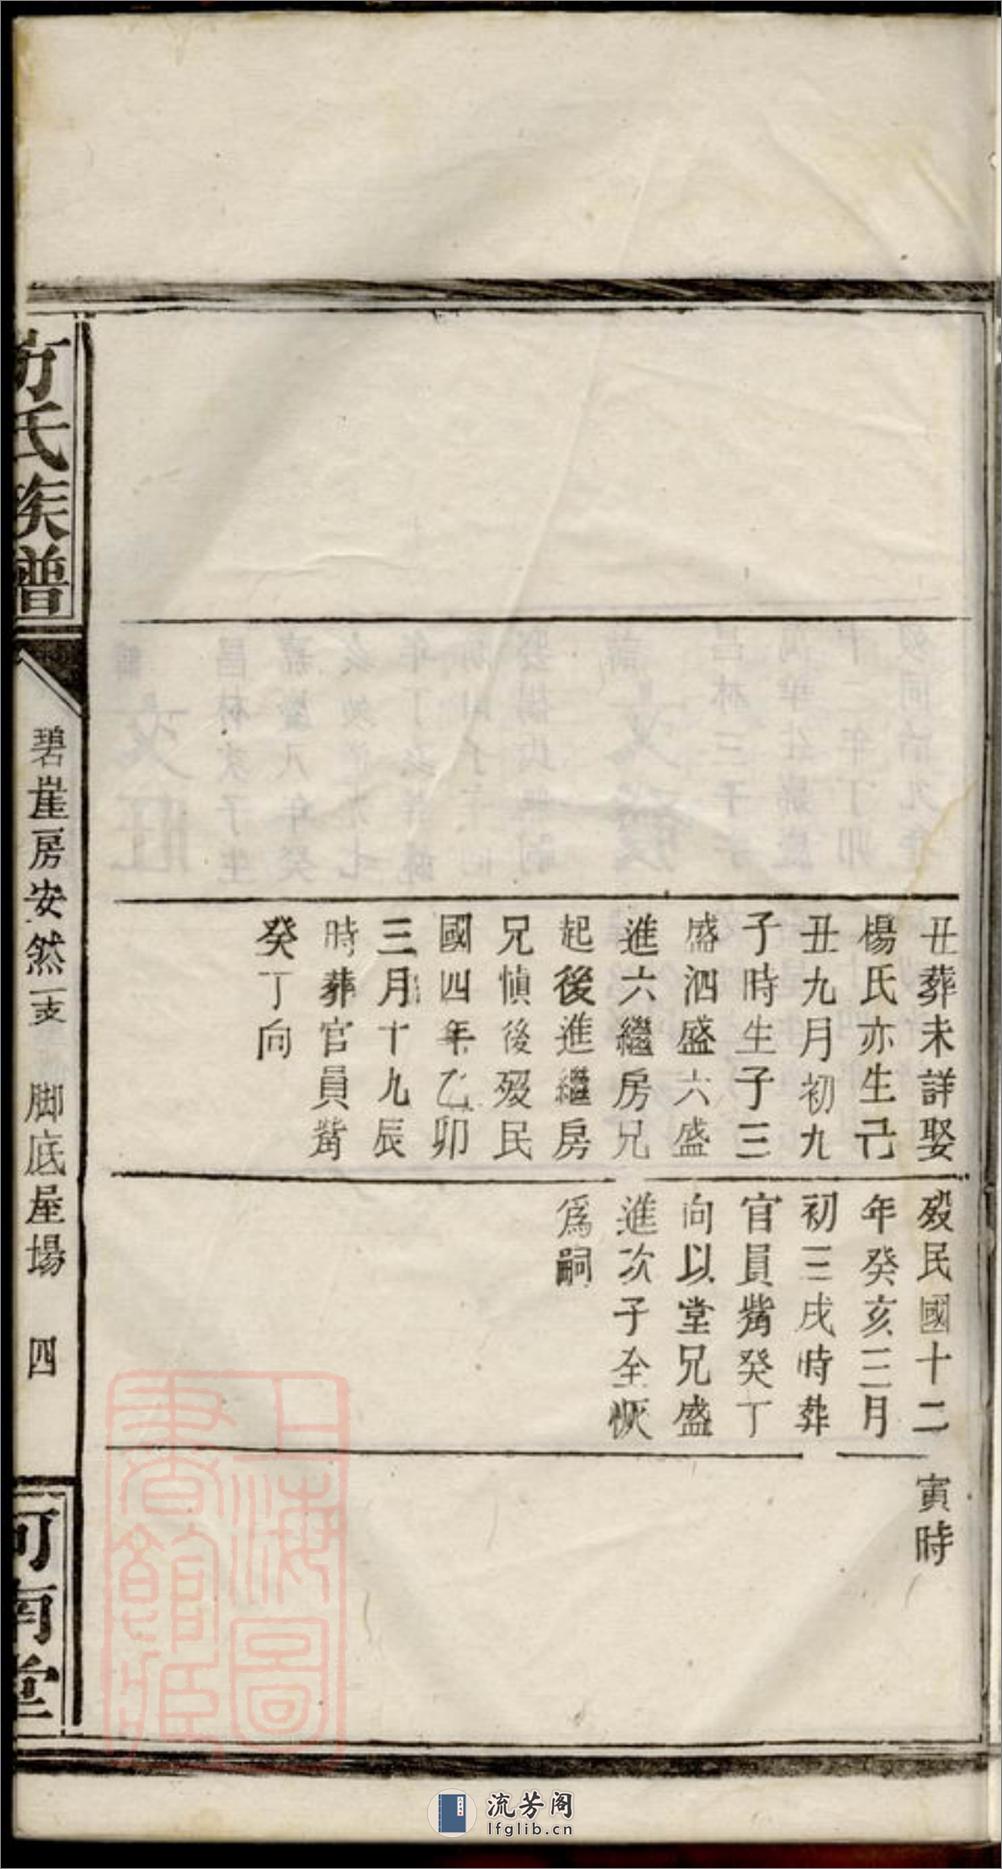 丑葬未詳娶
楊氏亦生己
丑九月初九
子時生子三
盛泗盛六盛
進六繼房兄
起後進繼房
兄慎後殁民
國四年乙卯
三月十九辰
時葬官員觜
癸丁向
殁民國十二
年癸亥三月
初三戌時葬
官員觜癸丁
向以堂兄盛
進次子全恢
爲嗣
寅時
氏族譜
碧崖房安然一支 脚底屋場 四
河南堂
上海圖
書館藏
流芳阁
lfglib.cn